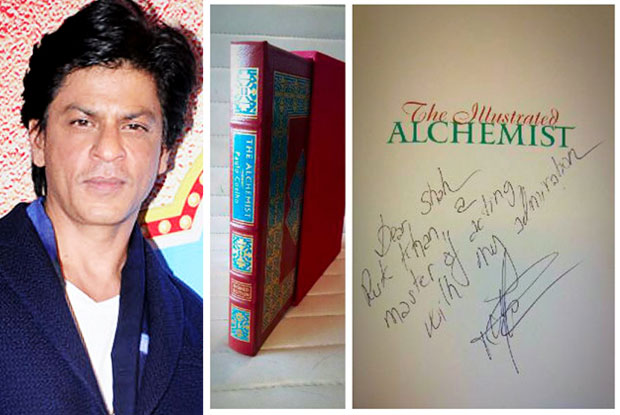 THE ALCHEMIST
Paulo Coelho
The Illustrated
ALCHEMIST
Dear Shah
Ruk Khan, a
master of acting
with my admiration